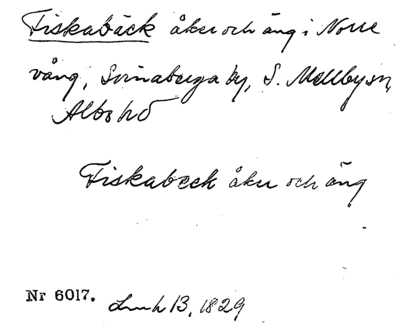 Fiskabäck åker och äng i Norre
vång, Svinaberga by, S. Mellby sn,
Albo hd
Fiskabeck åker och äng
Nr 6017. 13, 1829